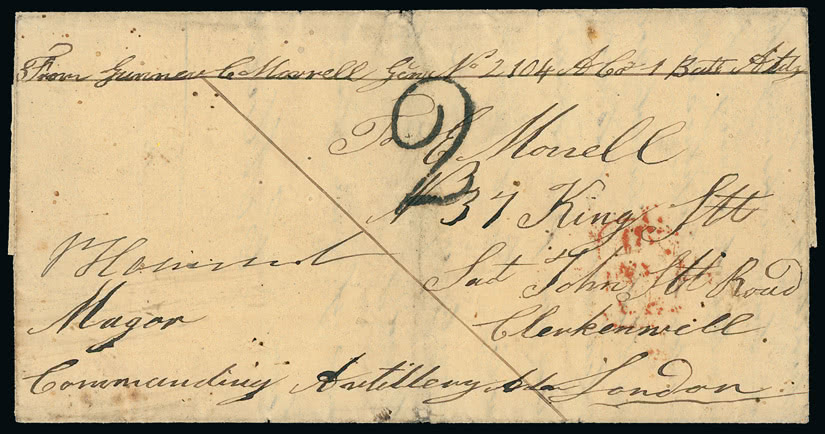 From Gunner C Morrell No 2104 A Coy 1 Batt
2
To C Morrell
No 37 King Stt
Sant John Stt Road
Clerkenwill
London
Magor
Commanding Artillery